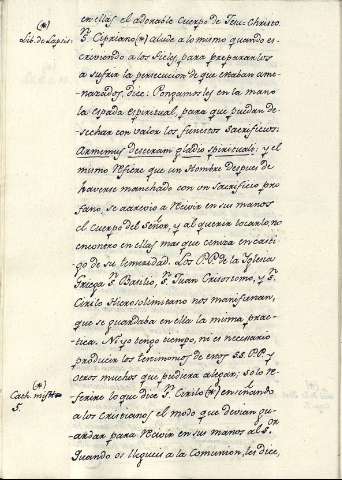 en ellas el adorable Cuerpo de Jesu-Christo.
(*)
Lib. de Lapsis.
Sn. Cipriano (*) alude a lo mismo quando es-
criviendo a los fieles, para prepararlos
a sufrir la persecucion de que estaban ame-
nazados, dice: Pongamosles en la mano
la espada espiritual, para que puedan de-
sechar con valor los funestos sacrificios:
Armemus dexteram gladio spirituali: y el
mismo refiere que un Hombre despues de
haverse manchado con un sacrificio pro
fano, se atrevio a recivir en sus manos
el cuerpo del Señor, y al querer tocarlo, no
encontro en ellas mas que ceniza en casti
go de su temeridad. Los PP. de la Iglesia
Griega Sn. Basilio, Sn. Juan Crisostomo, y Sn.
Cirilo Hierosolimitano nos manifiestan,
que se guardaba en ella la misma prac-
tica. Ni yo tengo tiempo, ni es necesario
producir los testimonios de estos SS. PP. y
otros muchos que pudiera alegar; solo re-
(*)
Cath. mist.
5.
ferire lo que dice Sn. Cirilo (*) enseñando
a los Cristianos el modo que devian gu-
ardar para recivir en sus manos al Sor.
Quando os llegueis a la Comunion, les dice,